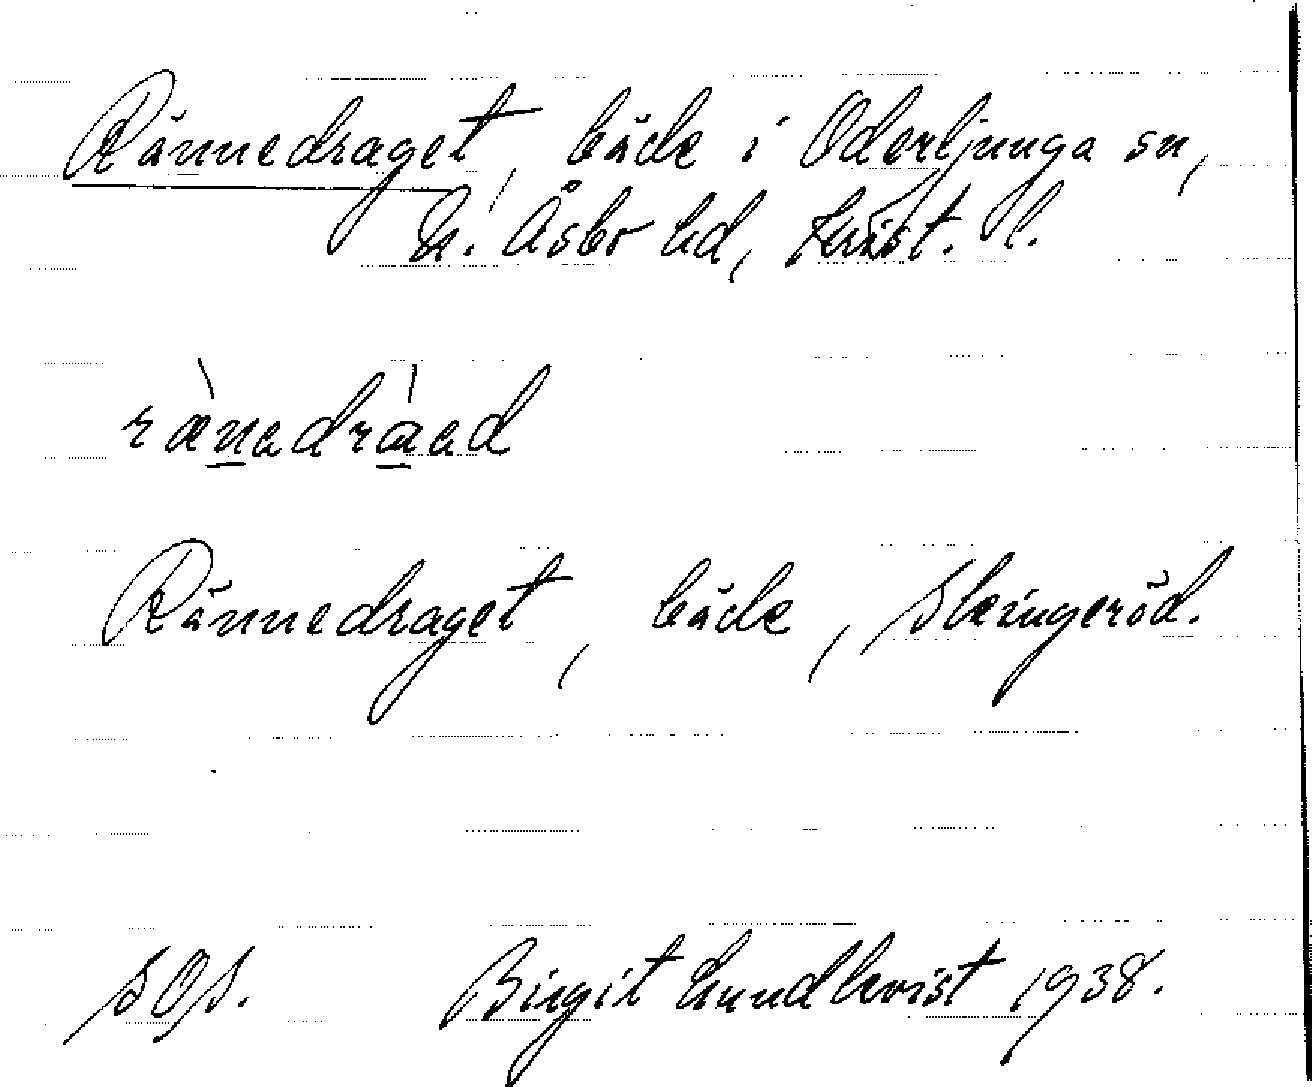 Rännedraget, bäck i Oderljunga sn,
N. Åsbo hd, Krist. l.
rànedráed
Rännedraget, bäck, Skingeröd.
SOS. Birgit Lundkvist 1938.